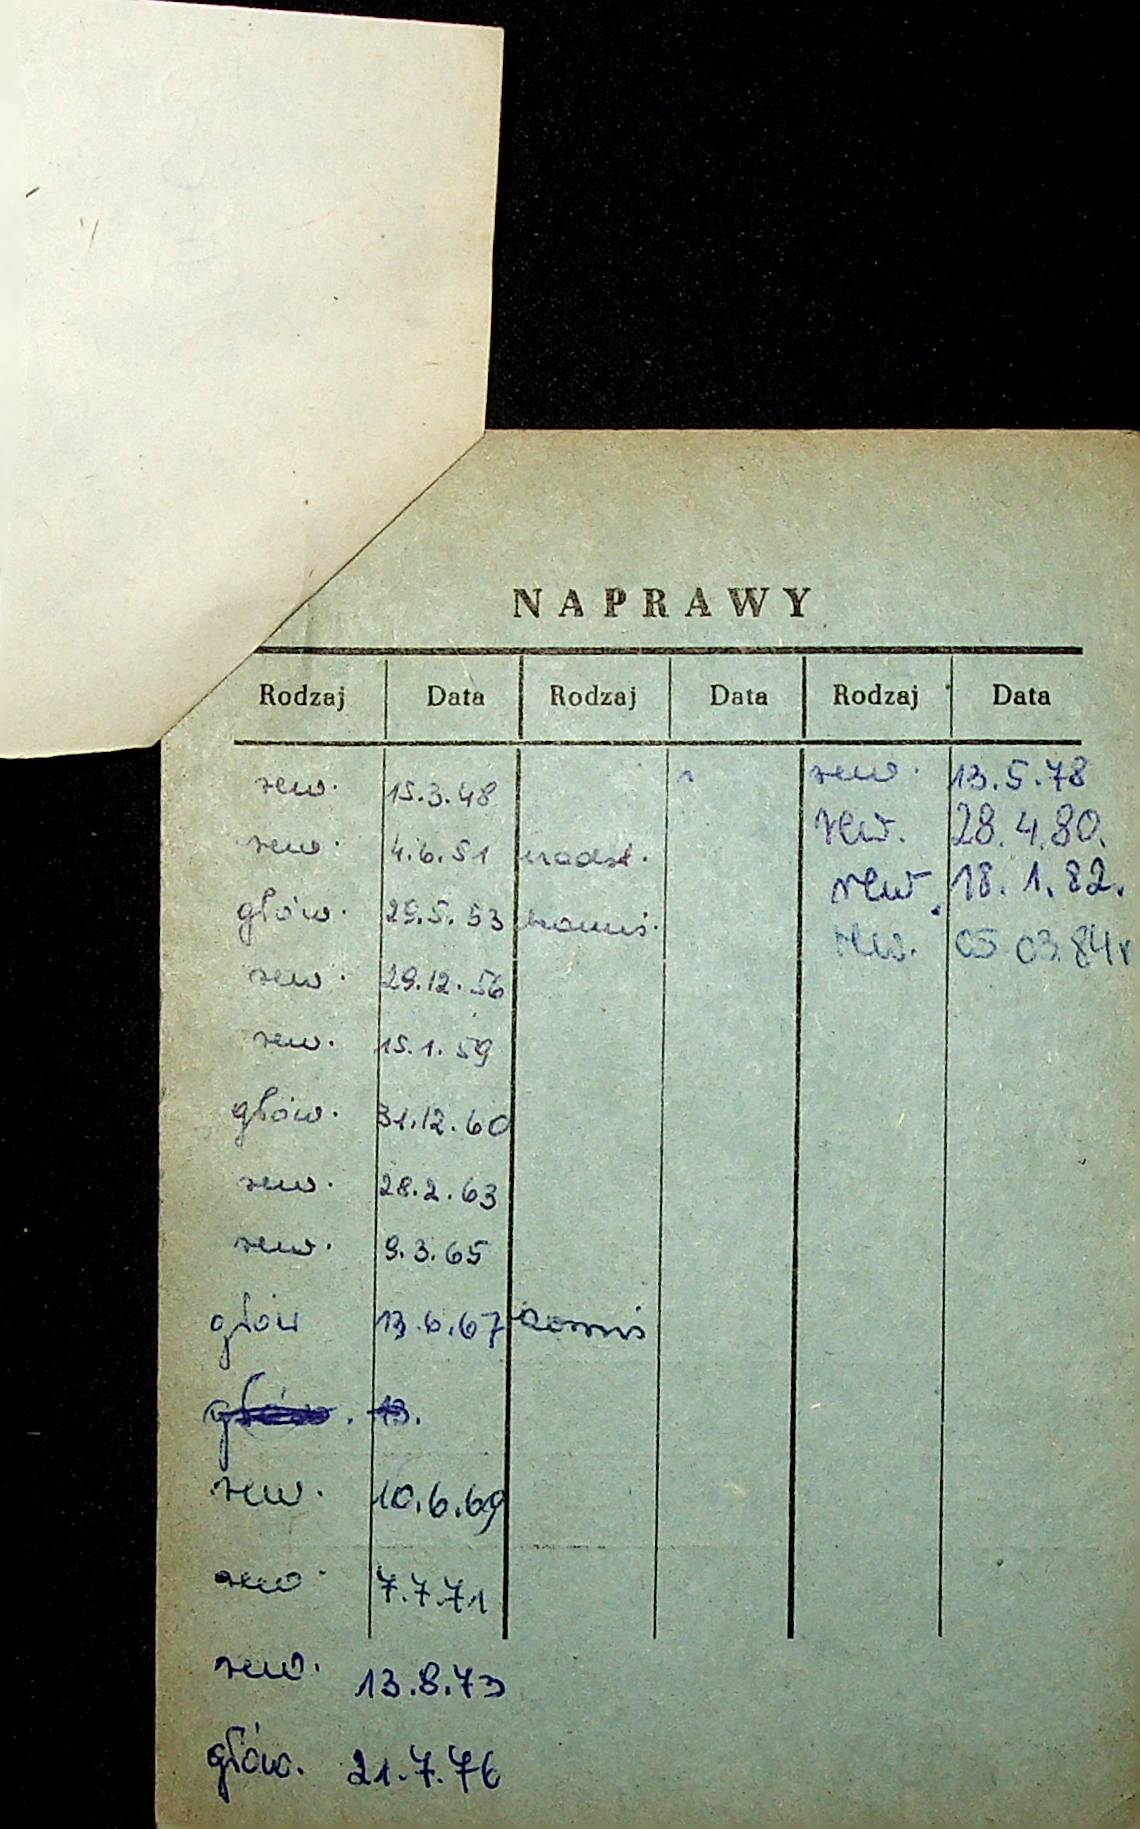 NAPRAWY
Rodzaj Data Rodzaj Data Rodzaj Data
rew. 15.3.48 rew. 13.5.78
rew. 4.6.51 nadst. rew. 28.4.80.
głów. 29.5.53 rew. 18.1.82.
rew. 29.12.56 rew. 05 03.84r
rew. 15.1.59
głów. 31.12.60
rew. 28.2.63
rew. 9.3.65
głów 13.6.67
głów. 13.
rew. 10.6.69
rew. 7.7.71
rew. 13.8.73
głów. 21.7.76